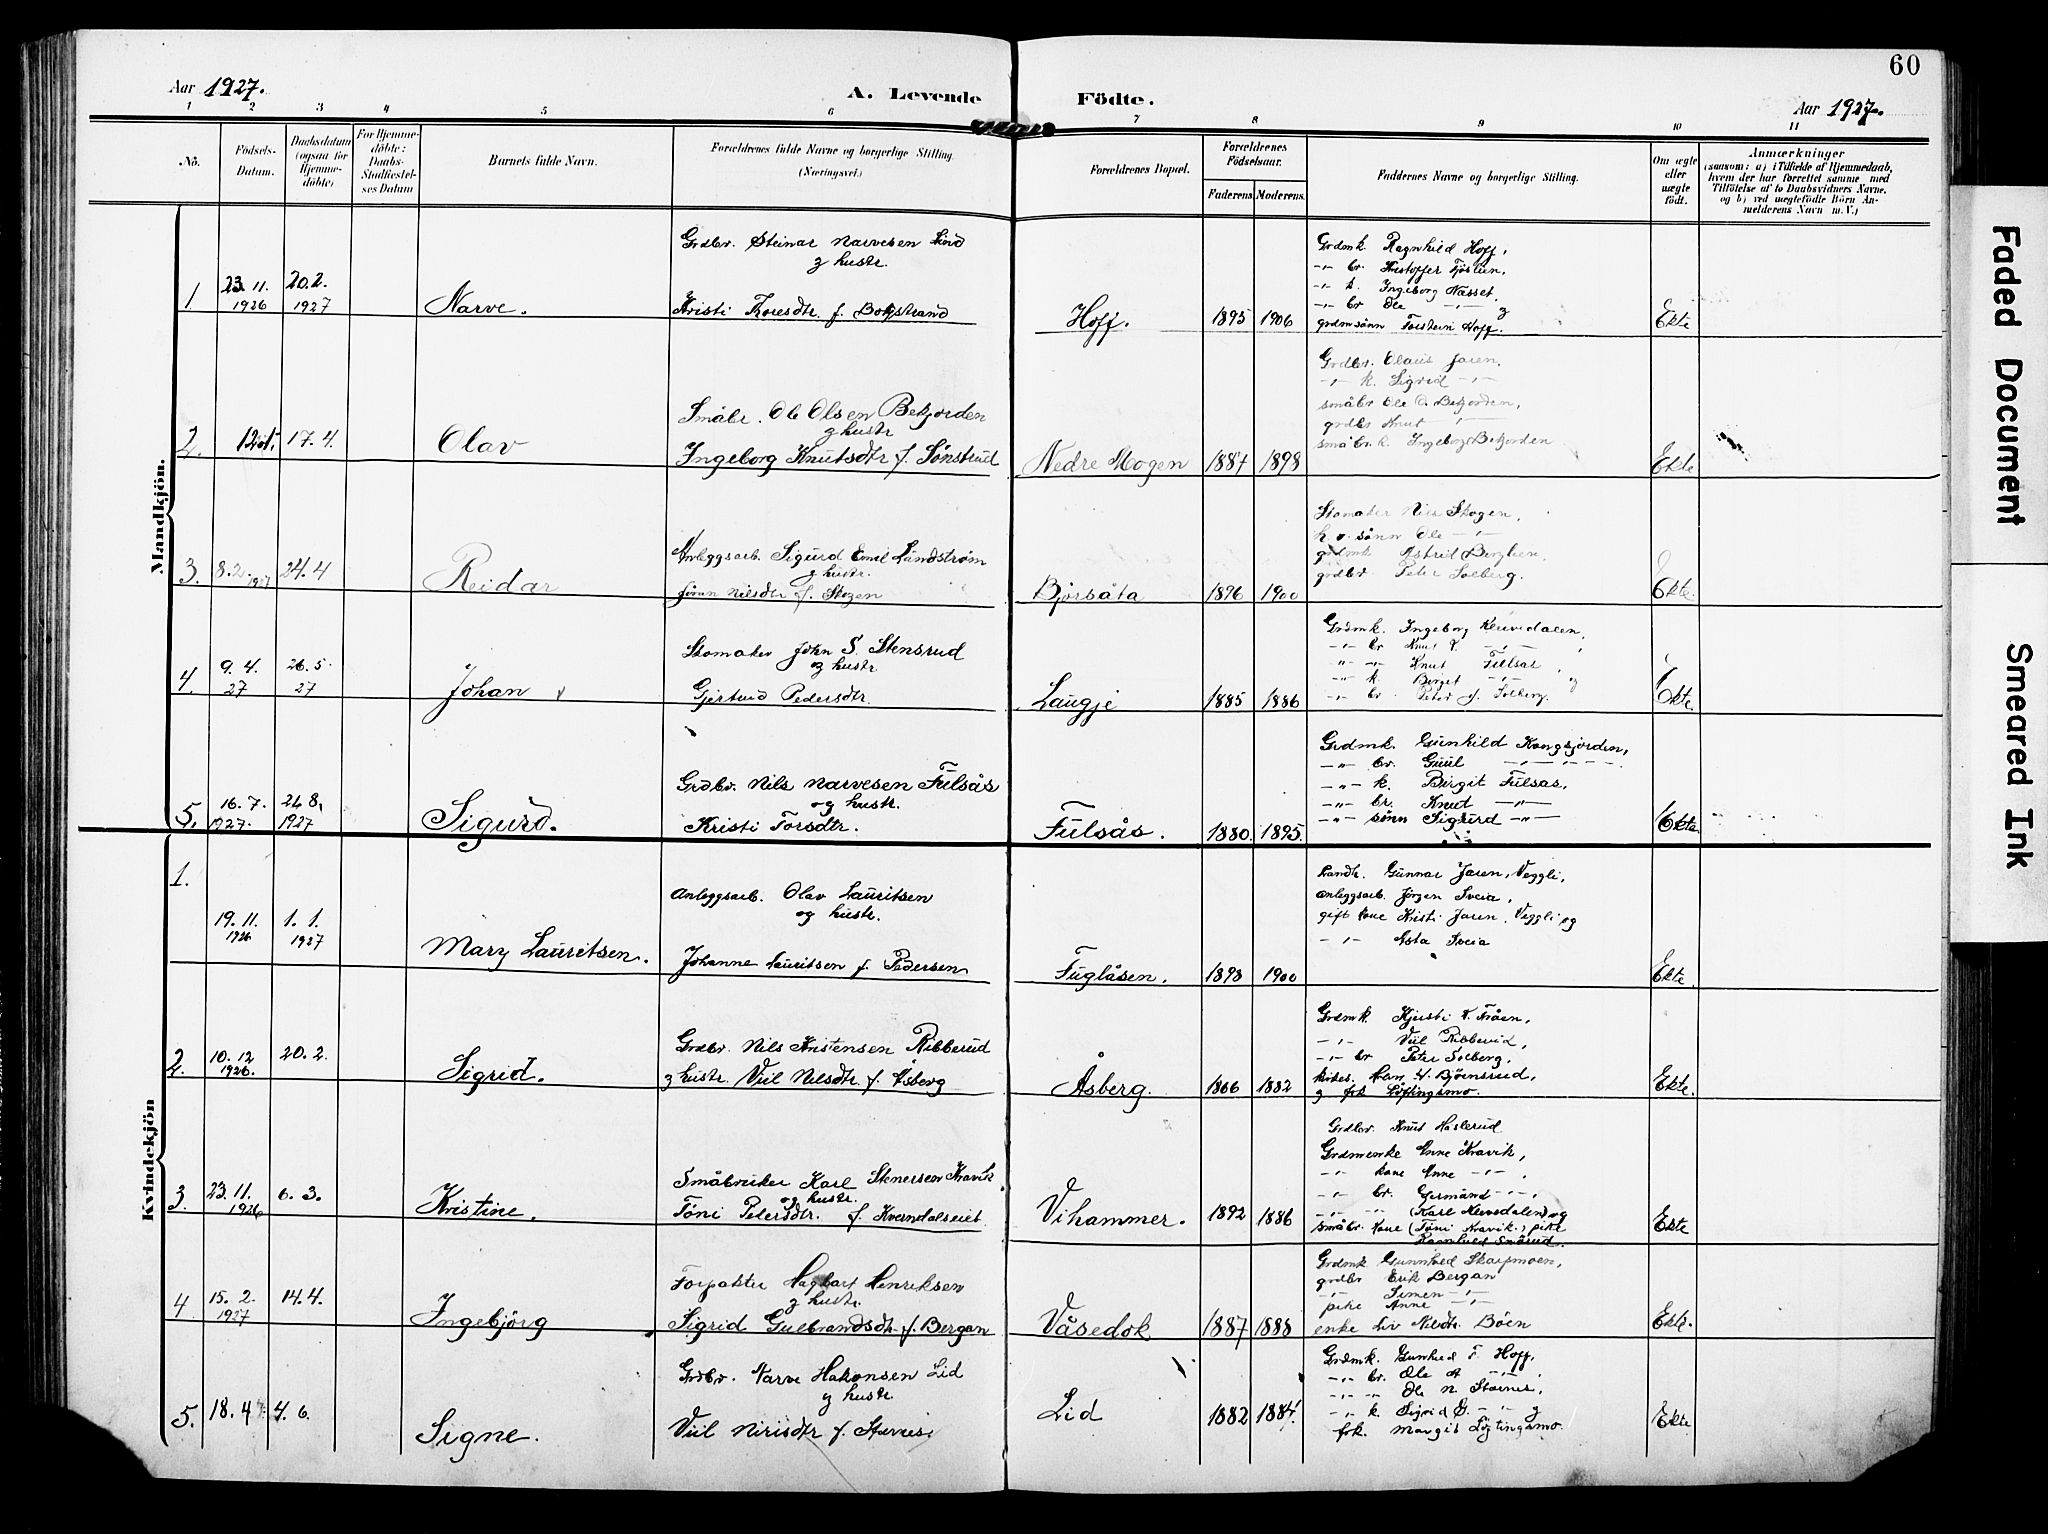 60
Aar 1927.
A. Levende
Födte.
Aar 1927.
1 2 3 4 5 6 7 8 9 10 11
No.
Födsels-
Datum.
Daabsdatum
(ogsaa for
Hjemme-
döbte)
For Hjemme-
döbte:
Daabs-
Stadfæstel-
ses Datum
Barnets fulde Navn.
Forældrenes fulde Navne og borgerlige Stilling.
(Næringsvei.)
Forældrenes Bopæl.
Forældrenes
Födselsaar.
Faderens Moderens.
Faddernes Navne og borgerlige Stilling.
Om ægte
eller
uægte
födt.
Anmærkninger
(saasom: a) i Tilfælde af Hjemmedaab,
hvem der har forrettet samme med
Tilföielse af to Daabsvidners Navne.
og b) ved uægtefödte Börn An-
melderens Navn m. V.)
Mandkjön.
1. 23.11. 1926 20.2. 1927
Narve.
Grdbr. Steinar Narvesen Lind
g hustr.
Kristi Toresdtr. f. Borgstrand
Hoff. 1895 1906
Grdmk. Ragnhild Hoff,
-"- br. Kristoffer Fjöslien,
-"- k. Ingeborg Næsset.
-"- br Ole -"- g
grdmsönn Torstein Hoff.
Ekte
2. 17.4.
Olav
Småbr. Ole Olsen Bekjorden
g hustr
Ingeborg Knutsdtr f. Sönstrud
Nedre Mogen 1887 1898
Grdbr. Olaus Jaren.
-"- k. Sigrid -"-
småbr Ole O. Bekjorden,
grdbr Knut -"-
småbr.k. Ingeborg Bekjorden
Ekte
3. 8.2. 1927 24.4
Reidar
Anleggsarb. Sigurd Emil Lundström
g hustr.
Jöran Nilsdtr f. Skogen
Bjørsåta 1896 1900
Skomaker Nils Skogen,
h. o. sönn Ole -"-
grdmk. Astrid Berglien.
grdbr. Peter Solberg.
Ekte.
4. 9.4. 27 26.5. 27
Johan
Skomaker John S. Stensrud
og hustr
Gjertrud Pedersdtr.
Laugje 1885 1886
Grdmk. Ingeborg Kervedalen,
-"- br Knut T. -"-
-"- -"- Knut Fulsås
-"- k Berget -"- og
-"- br. Peter f. Solberg.
Ekte.
5. 16.7. 1927. 24 8, 1927
Sigurd.
Grdbr. Nils Narvesen Fulsås
og hustr.
Kristi Torsdtr.
Fulsås. 1880 1895.
Grdmk. Gunhild Kongsjorden,
-"- br. Guul -"-
-"- k. Birgit Fulsas,
-"- br. Knut -"-
-"- sönn Sigurd -"-
Ekte
Kvindekjön
1. 19.11. 1926 1.1. 1927
Mary Lauritsen.
Anleggsarb. Olav Lauritsen
og hustr.
Johanne Lauritsen f. Pedersen
Fuglåsen. 1893 1900
Landh. Gunnar Jaren, Veggli,
anleggsarb. Jörgen Sveia,
gift kone Kristi Jaren, Veggli og
-"- Asta Sveia
Ekte.
2. 10.12 1926. 20.2.
Sigrid.
Grdbr. Nils Kristensen Ribberud
g hustr. Viil Nilsdtr. f. Åsberg
Åsberg. 1866 1882
Grdmk. Kjersti K. Fråen,
-"- Viil Ribberud,
-"- br Petri Solberg,
H. Bjöensrud,
g frk Löftingsmo.
Ekte.
3. 23.11. 1926 6.3.
Kristine.
Småbruker Karl Stenersen Kravik
og hustr.
Töni Petersdtr. f. Kverndalseiet
Vihammer. 1892 1886
Grdbr. Knut Haslerud
Grdmenke Anne Kravik,
-"- kone Anne -"-
-"- br. Germund -"-
småbr. kone (Töni Kravik.) pike
Ramhild Smörud.
Ekte
4 15.2. 1927 14.4.
Ingebjörg
Forpakter Hagbart Henriksen
g hustr.
Sigrid Gulbrandsdtr. f. Bergan
Våsedok 1887 1888
Grdmk Gunnhild Skarpmoen,
grdbr Erik Bergan
-"- Simen -"-
pike Anne -"-
enke Liv Nilsdtr. Böen
Ekte.
5. 18.4 4.6.
Signe.
Grdbr. Narve Hakonsen Lid
g hustr.
Viil Nirisdtr f. Stærnes
Lid 1882 1884.
Grdmk. Gunhild T. Hoff,
-"- br. Ole A -"-
-"- -"- Ole N. Stærnes,
-"- k. Sigrid G. -"- g
frk. Margit Löftingsmo.
Ekte
Faded Document
Smeared Ink